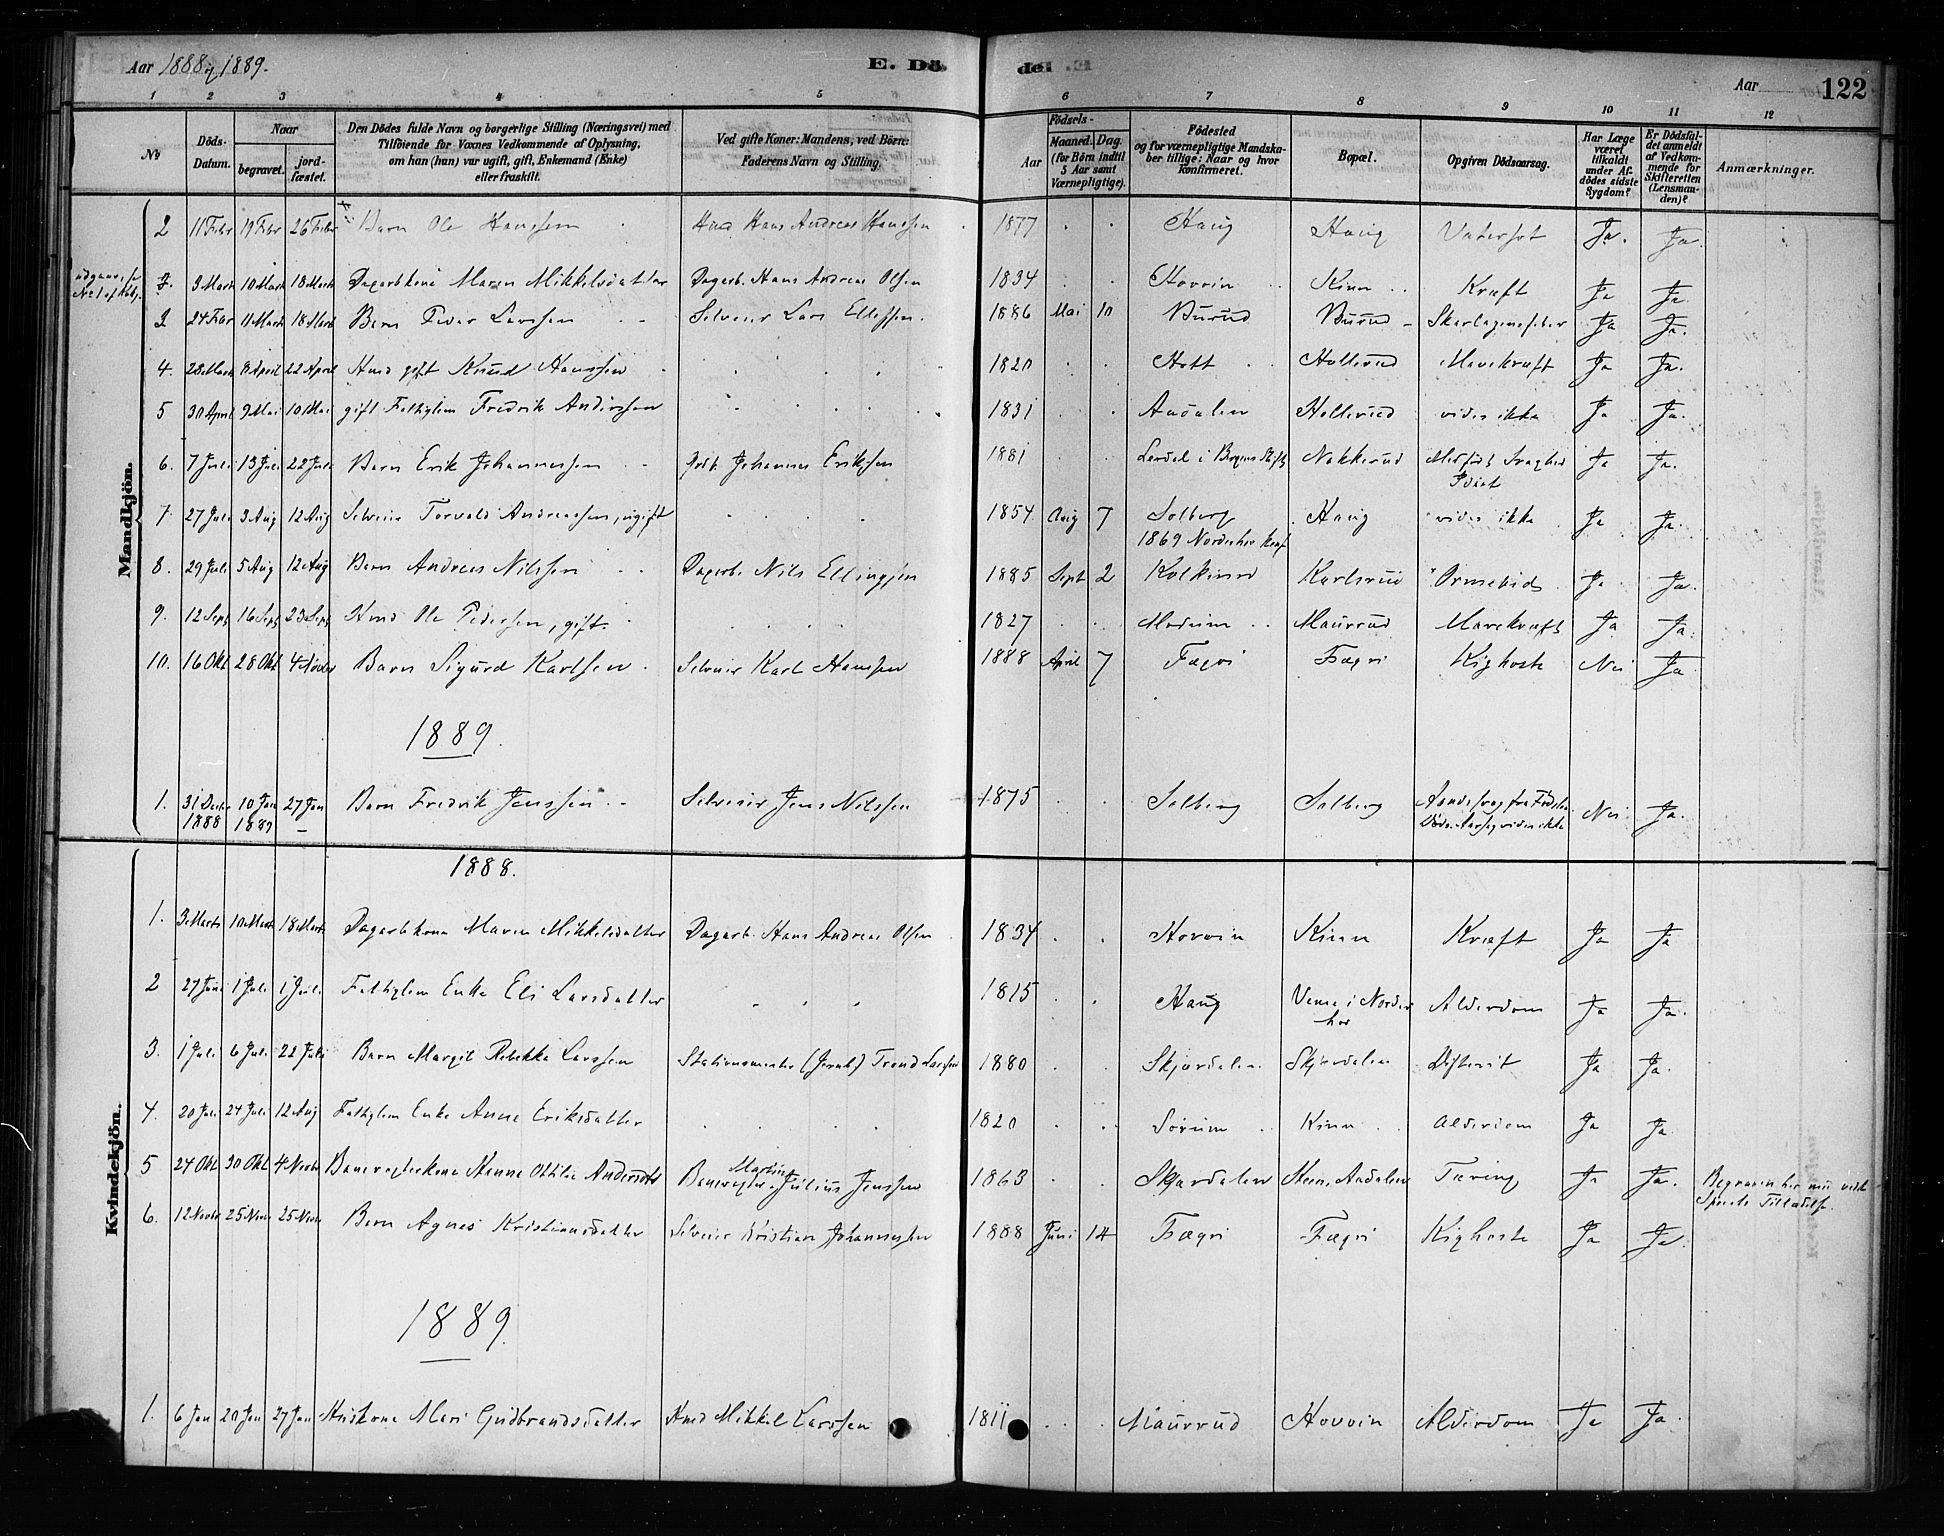 Aar 1888 & 1889.
E. Dö
del
Aar
122
1 2 3 4 5 6 7 8 9 10 11 12
No
Döds-Datum.
Naar
begravet.
jord-fæstet.
Den Dödes fulde Navn og borgerlige Stilling (Næringsvei) med
Tilföiende for Voxnes Vedkommende af Oplysning,
om han (hun) var ugift, gift, Enkemand (Enke)
eller fraskilt.
Ved gifte Koner: Mandens, ved Börn:
Faderens Navn og Stilling.
Födsels-
Aar
Maaned. Dag.
(for Börn indtil
5 Aar samt
Værnepligtige).
Födested
og for værnepligtige Mandska-
ber tillige: Naar og hvor
konfirmeret.
Bopæl.
Opgiven Dödsaarsag.
Har Læge
været
tilkaldt
under Af-
dödes sidste
Sygdom?
Er Dödsfal-
det anmeldt
af Vedkom-
mende for
Skifteretten
(Lensman-
den)?
Anmærkninger.
Mandkjön.
2 11 Febr 19 Febr 26 Febr Barn Ole Hanssen Hmd Hans Andreas Hanssen 1877 Haug Haug Vatersot Ja. Ja
udgaar, se No 1 af Kvkj.
3. 3 Marts 10 Marts 18 Marts Dagarbkone Maren Mikkelsdatter Dagarb. Hans Andreas Olsen 1834 Hovvin Kinn Kræft Ja Ja
3 24 Febr 11 Marts 18 Marts Barn Peder Larssen Selveier Lars Ellefsen. 1886 Mai 10 Burud Burud Skarlagensfeber Ja Ja.
4. 28 Marts 8 April 22 April Hmd gift Knud Hanssen 1820 Holt Hollerud Mavekræft Ja Ja.
5 30 April 9 Mai 10 Mai gift Fattiglem Fredrik Anderssen 1831 Aadalen Hollerud vides ikke Ja Ja.
6. 7 Juli 13 Juli 22 Juli Barn Erik Johannessen Johannes Eriksen 1881 Lerdal i Bergens Stift Nakkerud Medfødt Svaghed Ja Ja.
Idiot
7. 27 Juli 3 Aug 12 Aug Selveier Torvald Andreassen, ugift 1854 Aug 7 Solberg Haug vides ikke Ja Ja.
1869 Norderhov Konf
8. 29 Juli 5 Aug 12 Aug Barn Andreas Nilssen Dagarb. Nils Ellingsen 1885 Sept 2 Karlsrud Ormebid Ja Ja.
9. 12 Sept 16 Sept 23 Sept Hmd Ole Pedersen, gift. 1827 Modum Maurrud Mavekræft Ja Ja.
10. 16 Okt 28 Okt 4 Novbr Barn Sigurd Karlsen Selveier Karl Hanssen 1888 April 7 Fægri Fægri Kighoste Nei Ja
1889.
1. 31 Decbr 10 Jan 27 Jan Barn Fredrik Jenssen Selveier Jens Nilssen 1875 Solberg Solberg Aandssvag fra Fødslen Nei Ja.
1888 1889 Døds-Aarsag vides ikke
Kvindekjön.
1888.
1. 3 Marts 10 Marts 18 Marts Dagarbkone Maren Mikkelsdatter Dagarb. Hans Andreas Olsen 1834 Hovvin Kinn Kræft Ja Ja
2 27 Juni 1 Juli 1 Juli Fattiglem Enke Eli Larsdatter 1815 Haug Veme i Norder Alderdom Ja Ja.
hov
3. 1 Juli 6 Juli 22 Juli Barn Margit Rebekka Larssen Stationsmester (Jernb) Trond Larssen 1880 Skjærdalen Skjærdalen Difterit Ja Ja.
4. 20 Juli 24 Juli 12 Aug Fattiglem Enke Anne Eriksdatter 1820 Sørum Kinn Alderdom Ja Ja.
Martin
5 24 Okt 30 Okt 4 Novbr Banevogterkone Hanne Othilie Andersdtr Banevogter Julius Jenssen 1863 Skjærdalen Steen, Aadalen Tæring Ja Ja. Begraven her med
Tilladelse.
6. 12 Novbr 25 Novbr 25 Novbr Barn Agnes Kristiansdatter Selveier Kristian Johannessen 1888 Juni 14 Fægri Fægri Kighoste Ja Ja.
1889.
1. 6 Jan 20 Jan 27 Jan Huskone Mari Gudbrandsdatter Hmd Mikkel Larssen 1811 Maurrud Hovvin Alderdom Ja Ja.